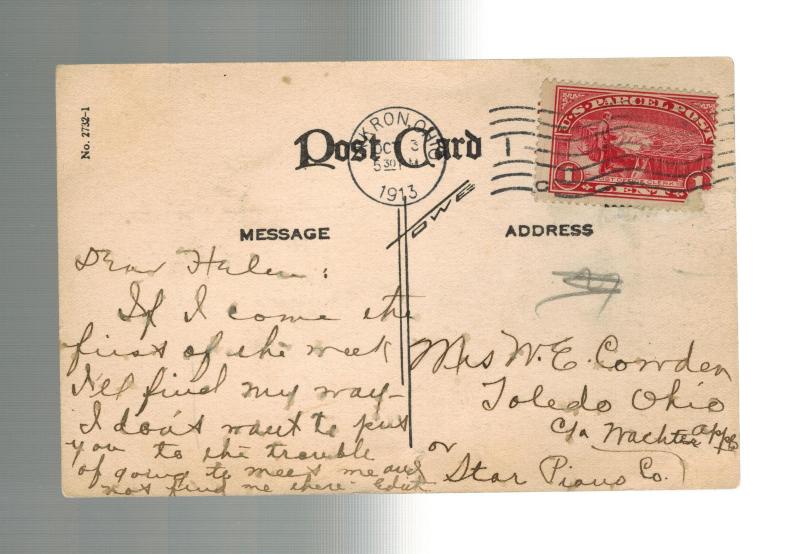 No. 2732-1
Post Card
AKRON, OHIO
OCT 3
5 30 PM
1913
U.S. PARCEL POST
1 CENT 1
POST OFFICE CLERK
OWE
MESSAGE
ADDRESS
Dear Helen:
If I come the
first of the week
I'll find my way—
I don't want to put
you to the trouble
of going to meet me and
not find me there. Edith
Mrs W. E. Cowden
Toledo Ohio
c/a Wachter
or
Star Piano Co.